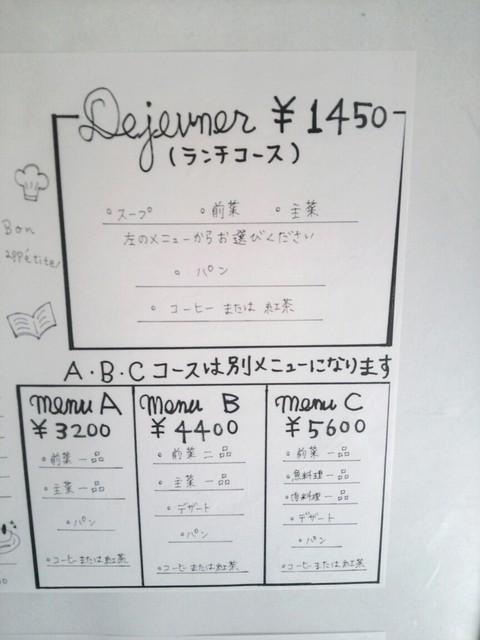 Dejeuner ¥1450
(ランチコース)
Bon
appétite!
。スープ 。前菜 。主菜
左のメニューからお選びください
。パン
。コーヒー または 紅茶
A・B・Cコースは別メニューになります
menu A
¥3200
。前菜 一品
。主菜 一品
。パン
。コーヒーまたは紅茶
Menu B
¥4400
。前菜 二品
。主菜 一品
。デザート
。パン
。コーヒーまたは紅茶
Menu C
¥5600
。前菜 一品
。魚料理 一品
。肉料理 一品
。デザート
。パン
。コーヒーまたは紅茶